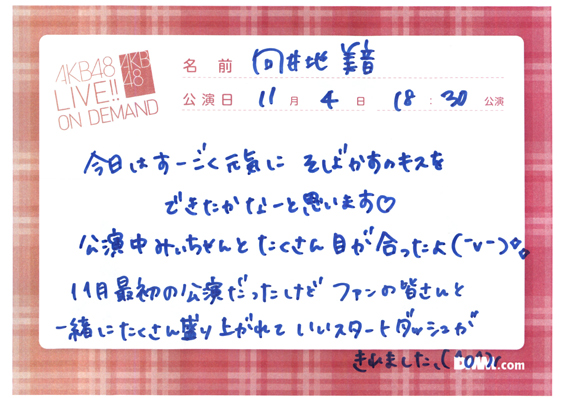 AKB48
LIVE!!
ON DEMAND
AKB
48
名前 向井地 美音
公演日 11月 4日 18:30 公演
今日はすーごく元気に そばかすのキスを
できたかなーと思います♡
公演中みぃちゃんとたくさん目が合ったよ(-v-)
11月最初の公演だったけど ファンの皆さんと
一緒にたくさん盛り上がれて いいスタートダッシュが
きれました、(^o^)
DMM.com